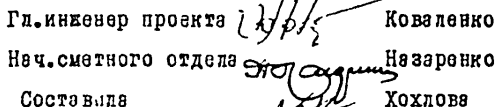 Гл.инженер проекта Коваленко
Нач.сметного отдела Назаренко
Составила Хохлова